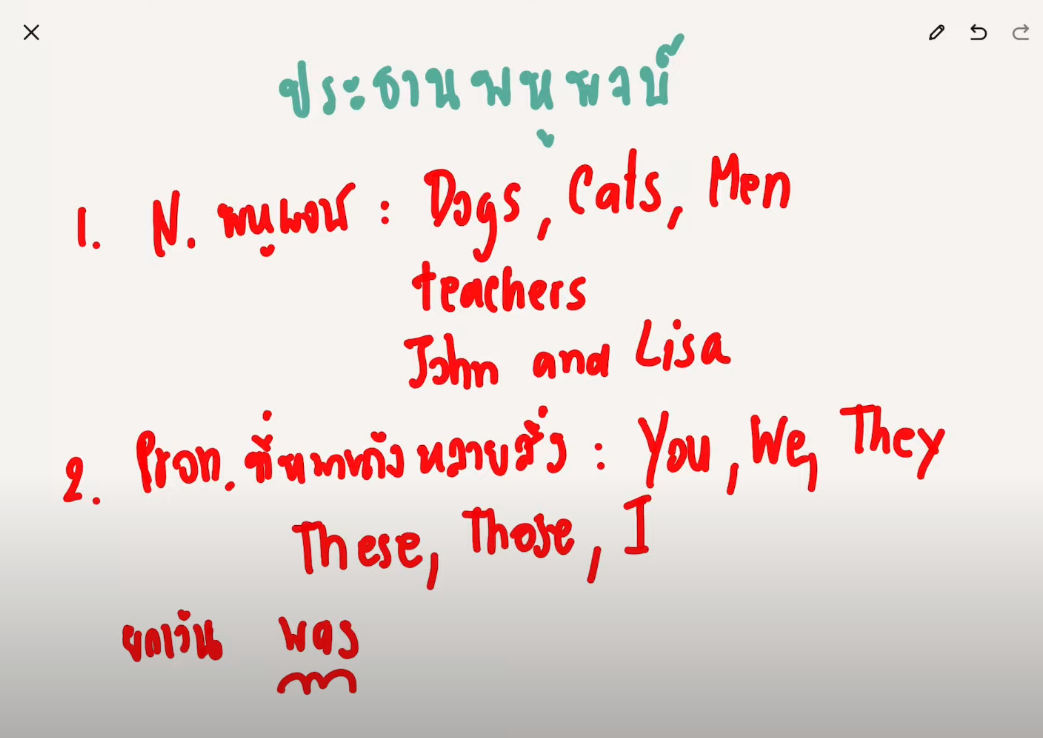 ประธานพหูพจน์
1. N. พหูพจน์ : Dogs, Cats, Men
teachers
John and Lisa
2. Pron. ที่หมายถึงหลายสิ่ง : You, We, They
These, Those, I
ยกเว้น was